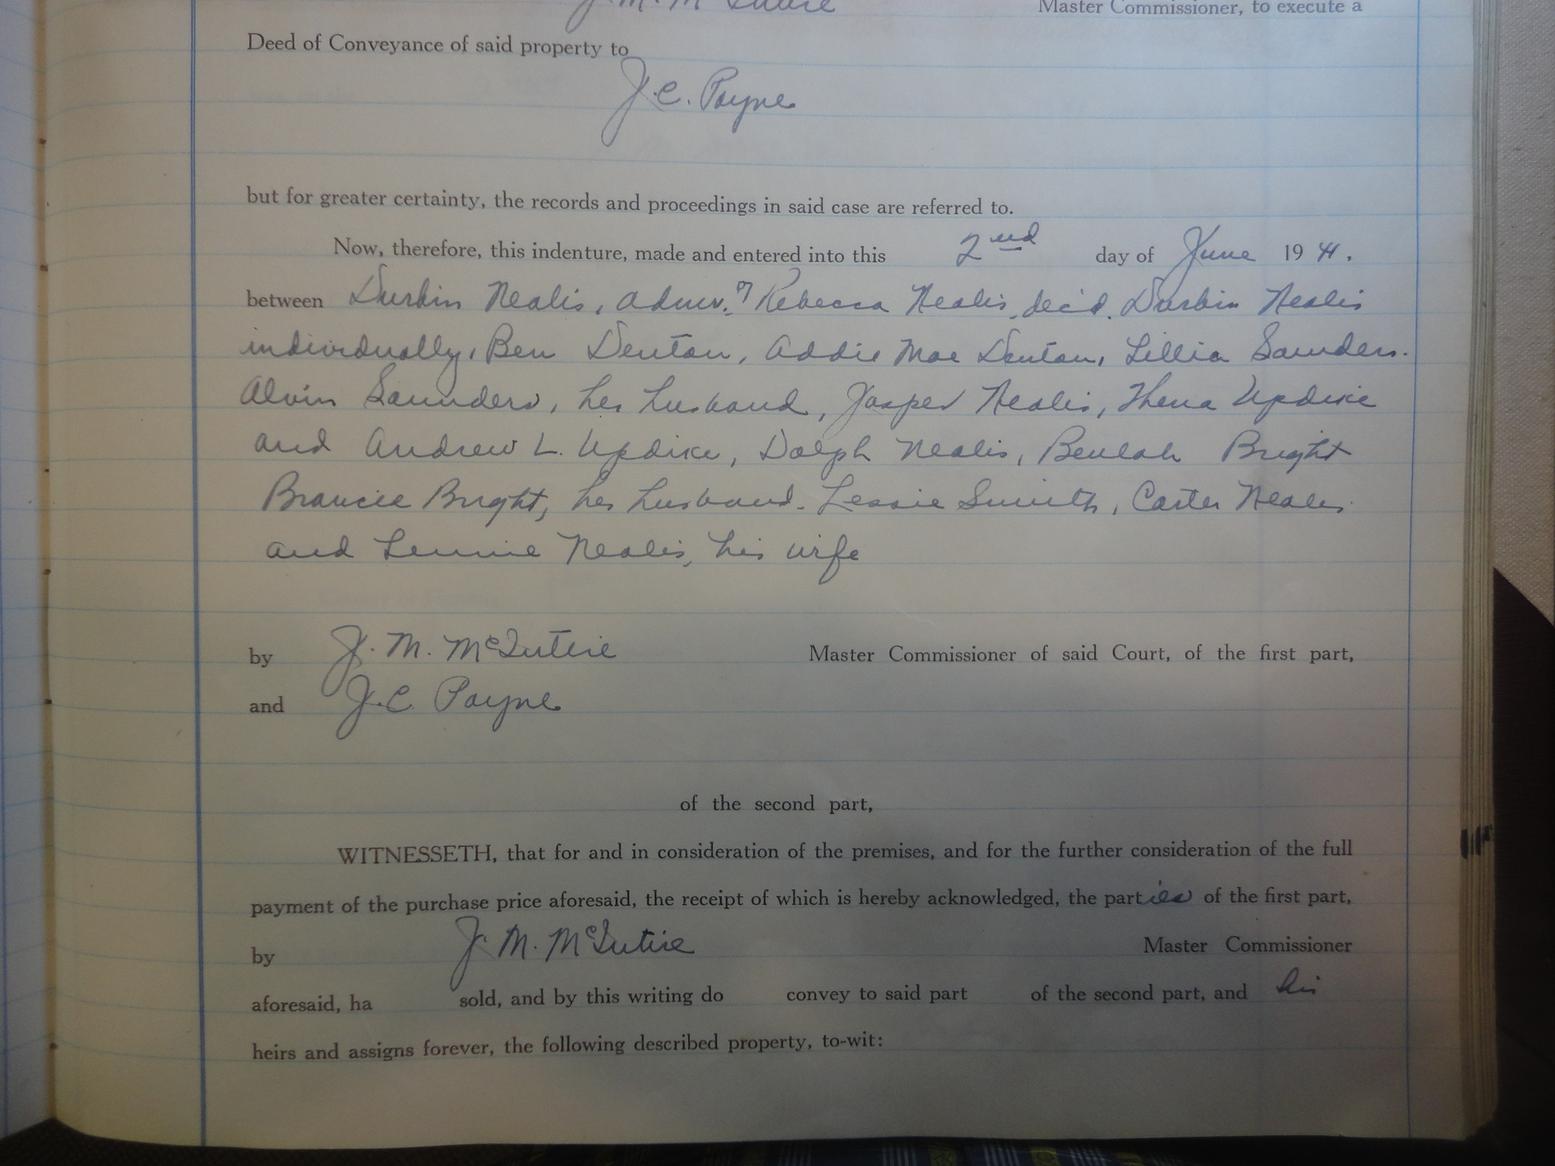 J. M. McIntire Master Commissioner, to execute a
Deed of Conveyance of said property to
J. C. Payne
but for greater certainty, the records and proceedings in said case are referred to.
Now, therefore, this indenture, made and entered into this 2nd day of June 1941.
between Durbin Nealis, admr. of Rebecca Nealis, dec'd. Durbin Nealis
individually, Ben Denton, Addie Mae Denton, Lillia Saunders.
Alvin Saunders, her husband, Jasper Nealis, Thena Updike
and Andrew L. Updike, Dolph Nealis, Beulah Bright
Bright, her husband. Lessie Smith, Carter Nealis
and Lennie Nealis, his wife
by J. M. McIntire Master Commissioner of said Court, of the first part,
and J. C. Payne
of the second part,
WITNESSETH, that for and in consideration of the premises, and for the further consideration of the full
payment of the purchase price aforesaid, the receipt of which is hereby acknowledged, the parties of the first part,
by J. M. McIntire Master Commissioner
aforesaid, ha sold, and by this writing do convey to said part of the second part, and his
heirs and assigns forever, the following described property, to-wit: